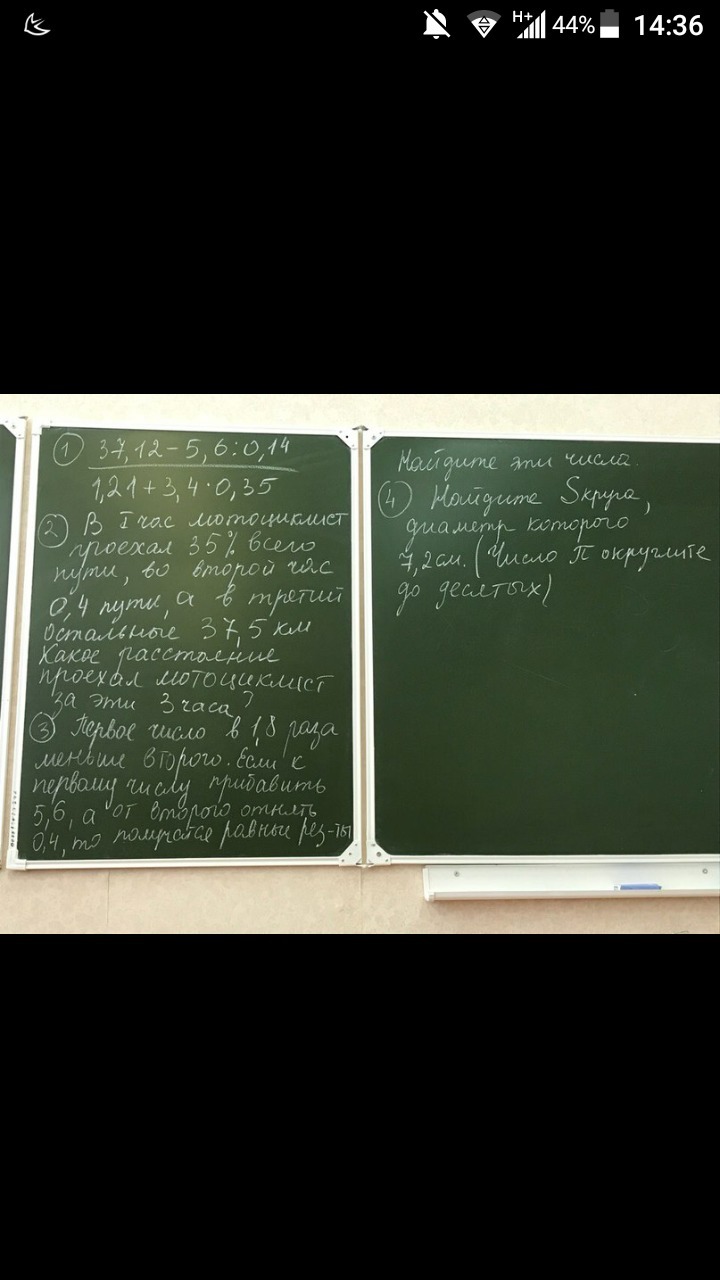 H+ 44% 14:36
① 37,12 − 5,6 : 0,14
1,21 + 3,4 · 0,35
② В I час мотоциклист
проехал 35% всего
пути, во второй час
0,4 пути, а в третий
остальные 37,5 км
Какое расстояние
проехал мотоциклист
за эти 3 часа?
③ Первое число в 1,8 раза
меньше второго. Если к
первому числу прибавить
5,6, а от второго отнять
0,4, то получатся равные рез-ты
Найдите эти числа.
④ Найдите S круга,
диаметр которого
7,2 см. (Число П округлите
до десятых)